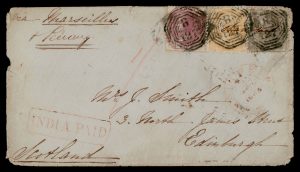 via Marseilles
& Penang
INDIA PAID
Mr J. Smith
3. North James Street
Edinburgh
Scotland